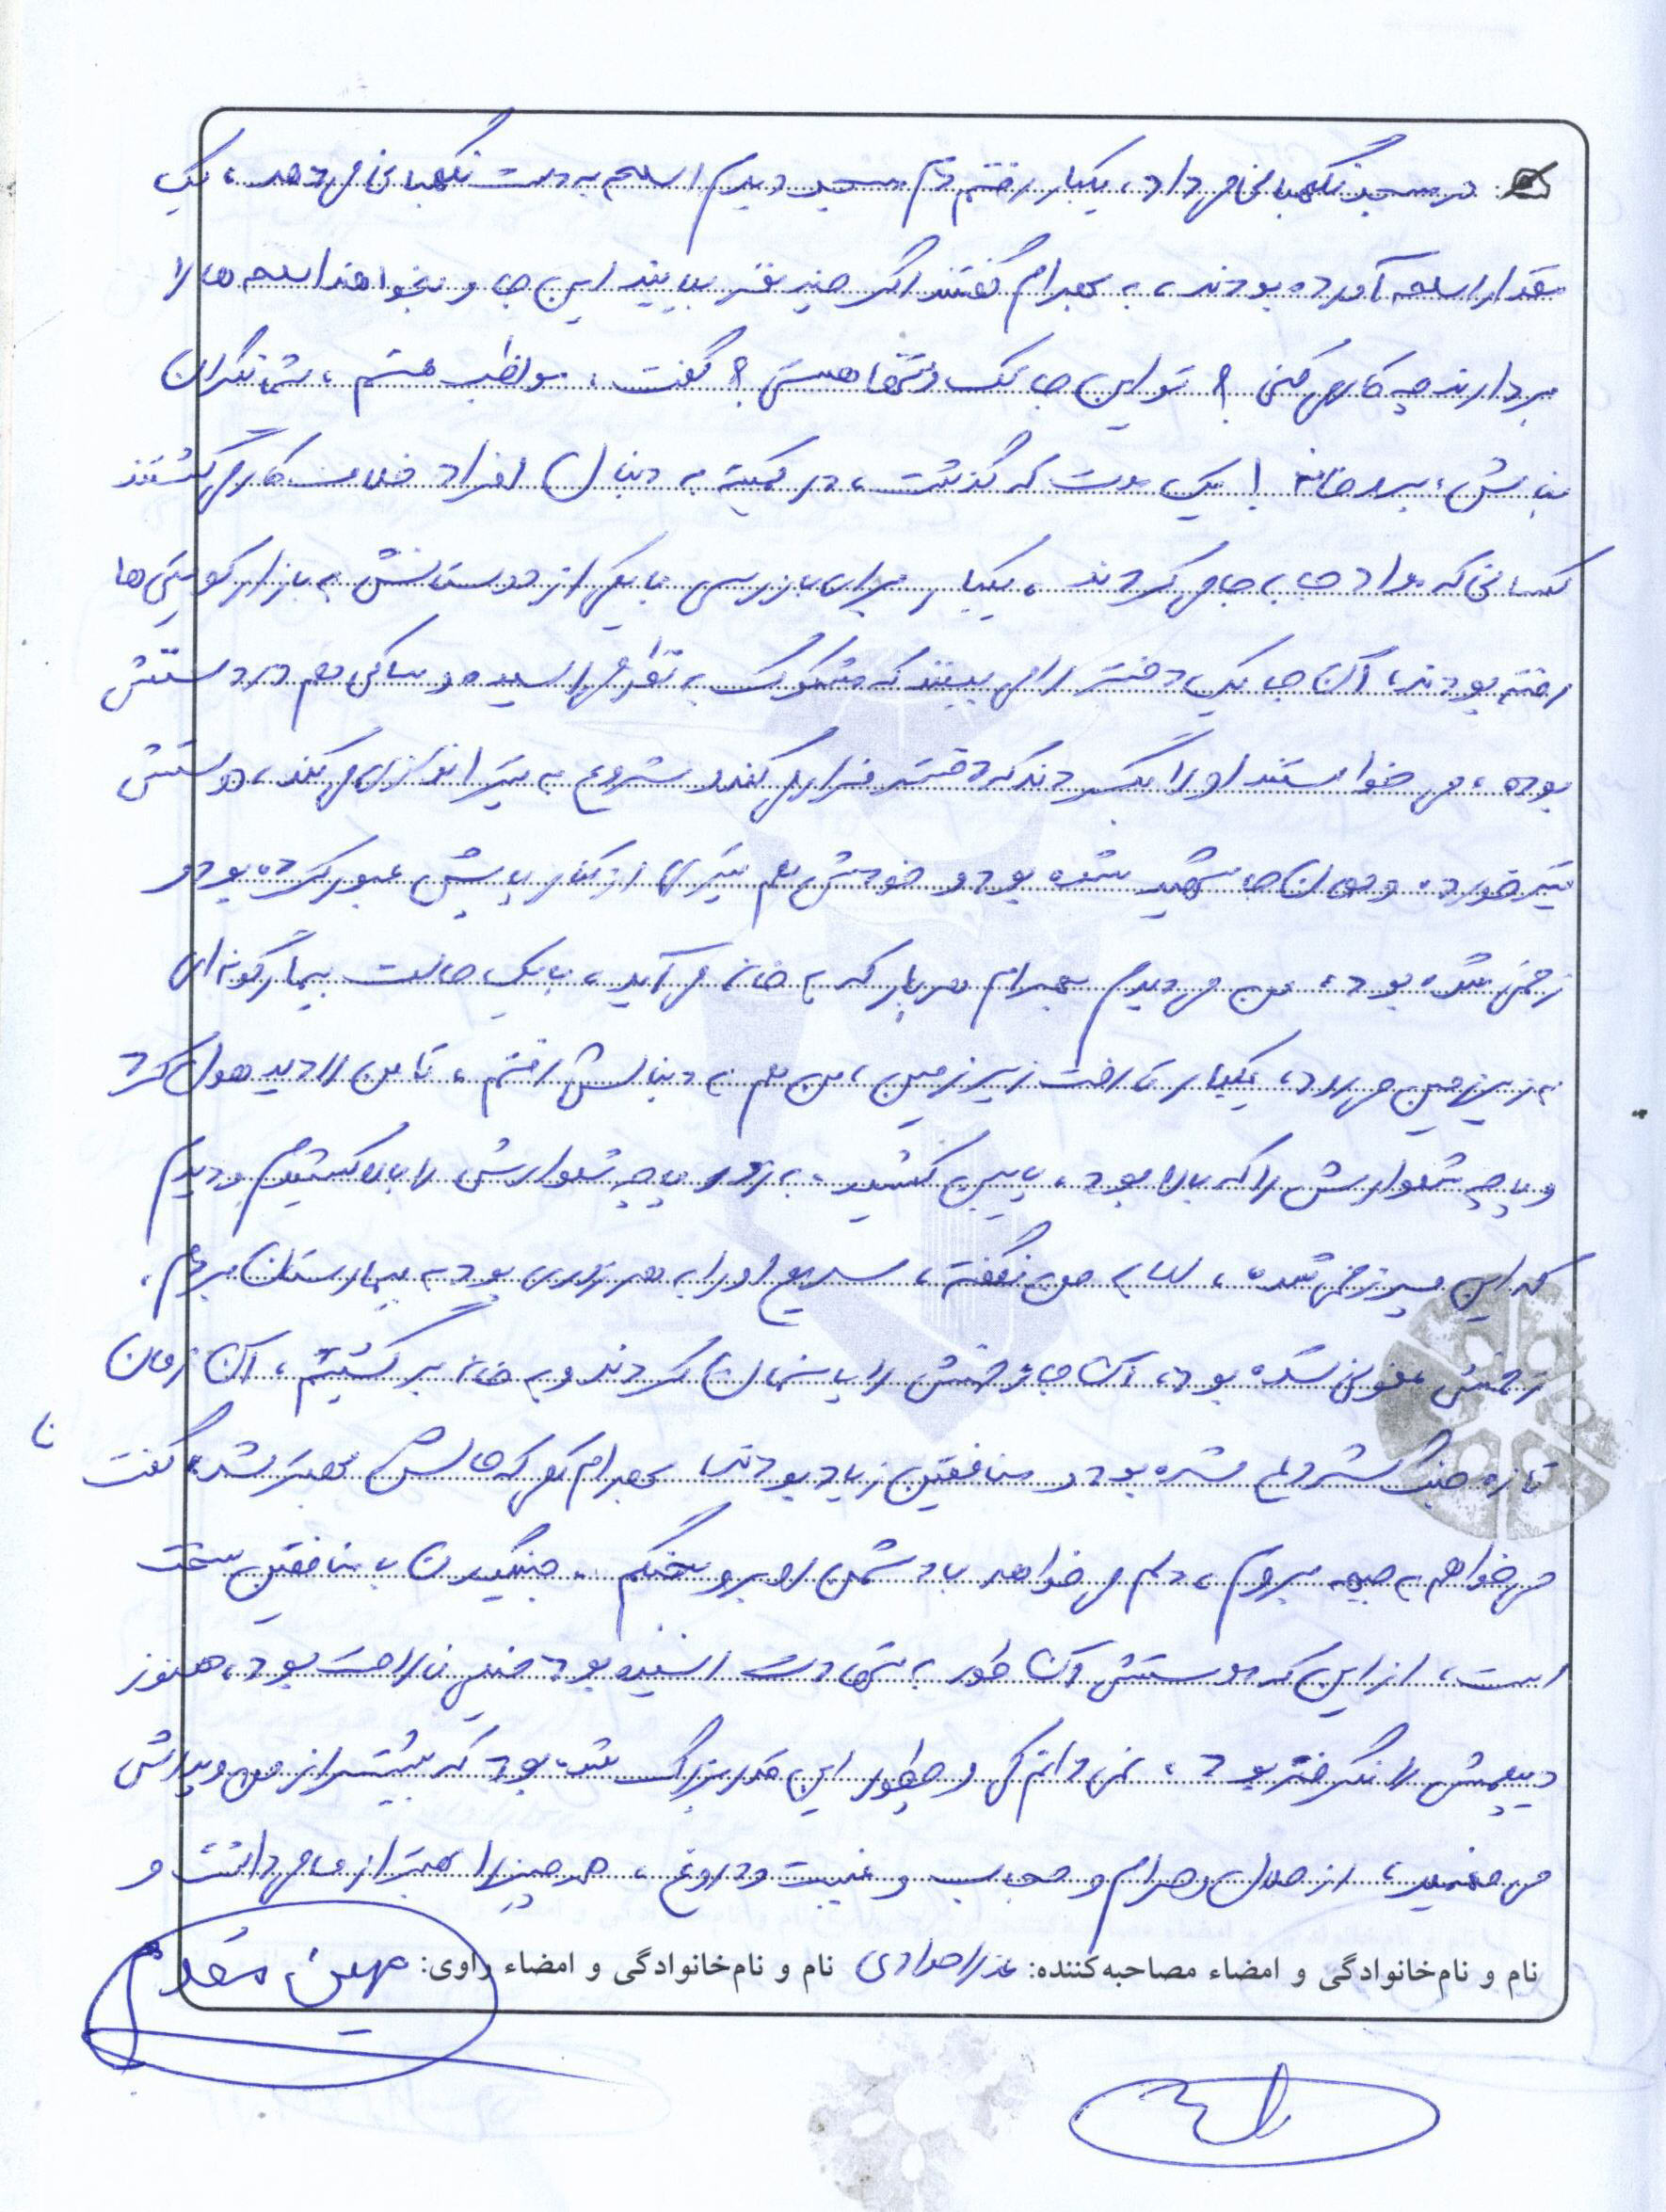 در مسجد نگهبانی می‌داد، یکبار رفتم دم مسجد دیدم اسلحه به دست نگهبانی می‌دهد، یک
مقدار اسلحه آورده بودند، به بهرام گفتند اگر چند نفر بیایند این جا و بخواهند اسلحه ها را
بردارند چه کار می‌کنی؟ تو این جا تک و تنها هستی؟ گفت، مواظب هستم، شما نگران
نباش، برو خانه! یک مدت که گذشت، در کمیته به دنبال افراد خلاف کار می‌گشتند
کسانی که مواد جا به جا می‌کردند، یکبار برای بازرسی با یکی از دوستانش به بازار کویتی‌ها
رفته بودند، آن جا یک دختر را می‌بینند که مشکوک به نظر می‌رسیده و ساکی هم در دستش
بوده، می خواستند او را بگیرند که دختر فرار می‌کند و شروع به تیراندازی می‌کند، دوستش
تیر خورده و همان جا شهید شده بود و خودش هم تیری از کنار پایش عبور کرده بود و
زخمی شده بود، من می دیدم بهرام هر بار که به خانه می‌آید، با یک حالت بیمارگونه‌ای
به زیرزمین می رود، یکبار تا رفت زیرزمین، من هم به دنبالش رفتم، تا من را دید هول کرد
و پاچه شلوارش را که بالا بود، پایین کشید، به زور پاچه شلوارش را بالا کشیدم و دیدم
که این پسر زخمی شده، اما به من نگفته، سریع او را به هر زوری بود به بیمارستان بردم،
زخمش عفونی شده بود، آن جا زخمش را پانسمان کردند و به خانه برگشتیم، آن زمان
تازه جنگ شروع شده بود و منافقین زیاد بودند، بهرام کمی که حالش بهتر شد، گفت
می خواهم به جبهه بروم، دلم می خواهد با دشمن روبرو بجنگم، جنگیدن با منافقین سخت
است، از این که دوستش آن طور به شهادت رسیده بود خیلی ناراحت بود، هنوز
دیپلمش را نگرفته بود، نمی دانم کی و چطور این قدر بزرگ شده بود که بیشتر از من و پدرش
می فهمید، از حلال و حرام و حجاب و غیبت و دروغ، هر چیز را بهتر از ما می دانست و
نام و نام‌خانوادگی و امضاء مصاحبه‌کننده: عذرا مرادی نام و نام‌خانوادگی و امضاء راوی: مهین مقدم